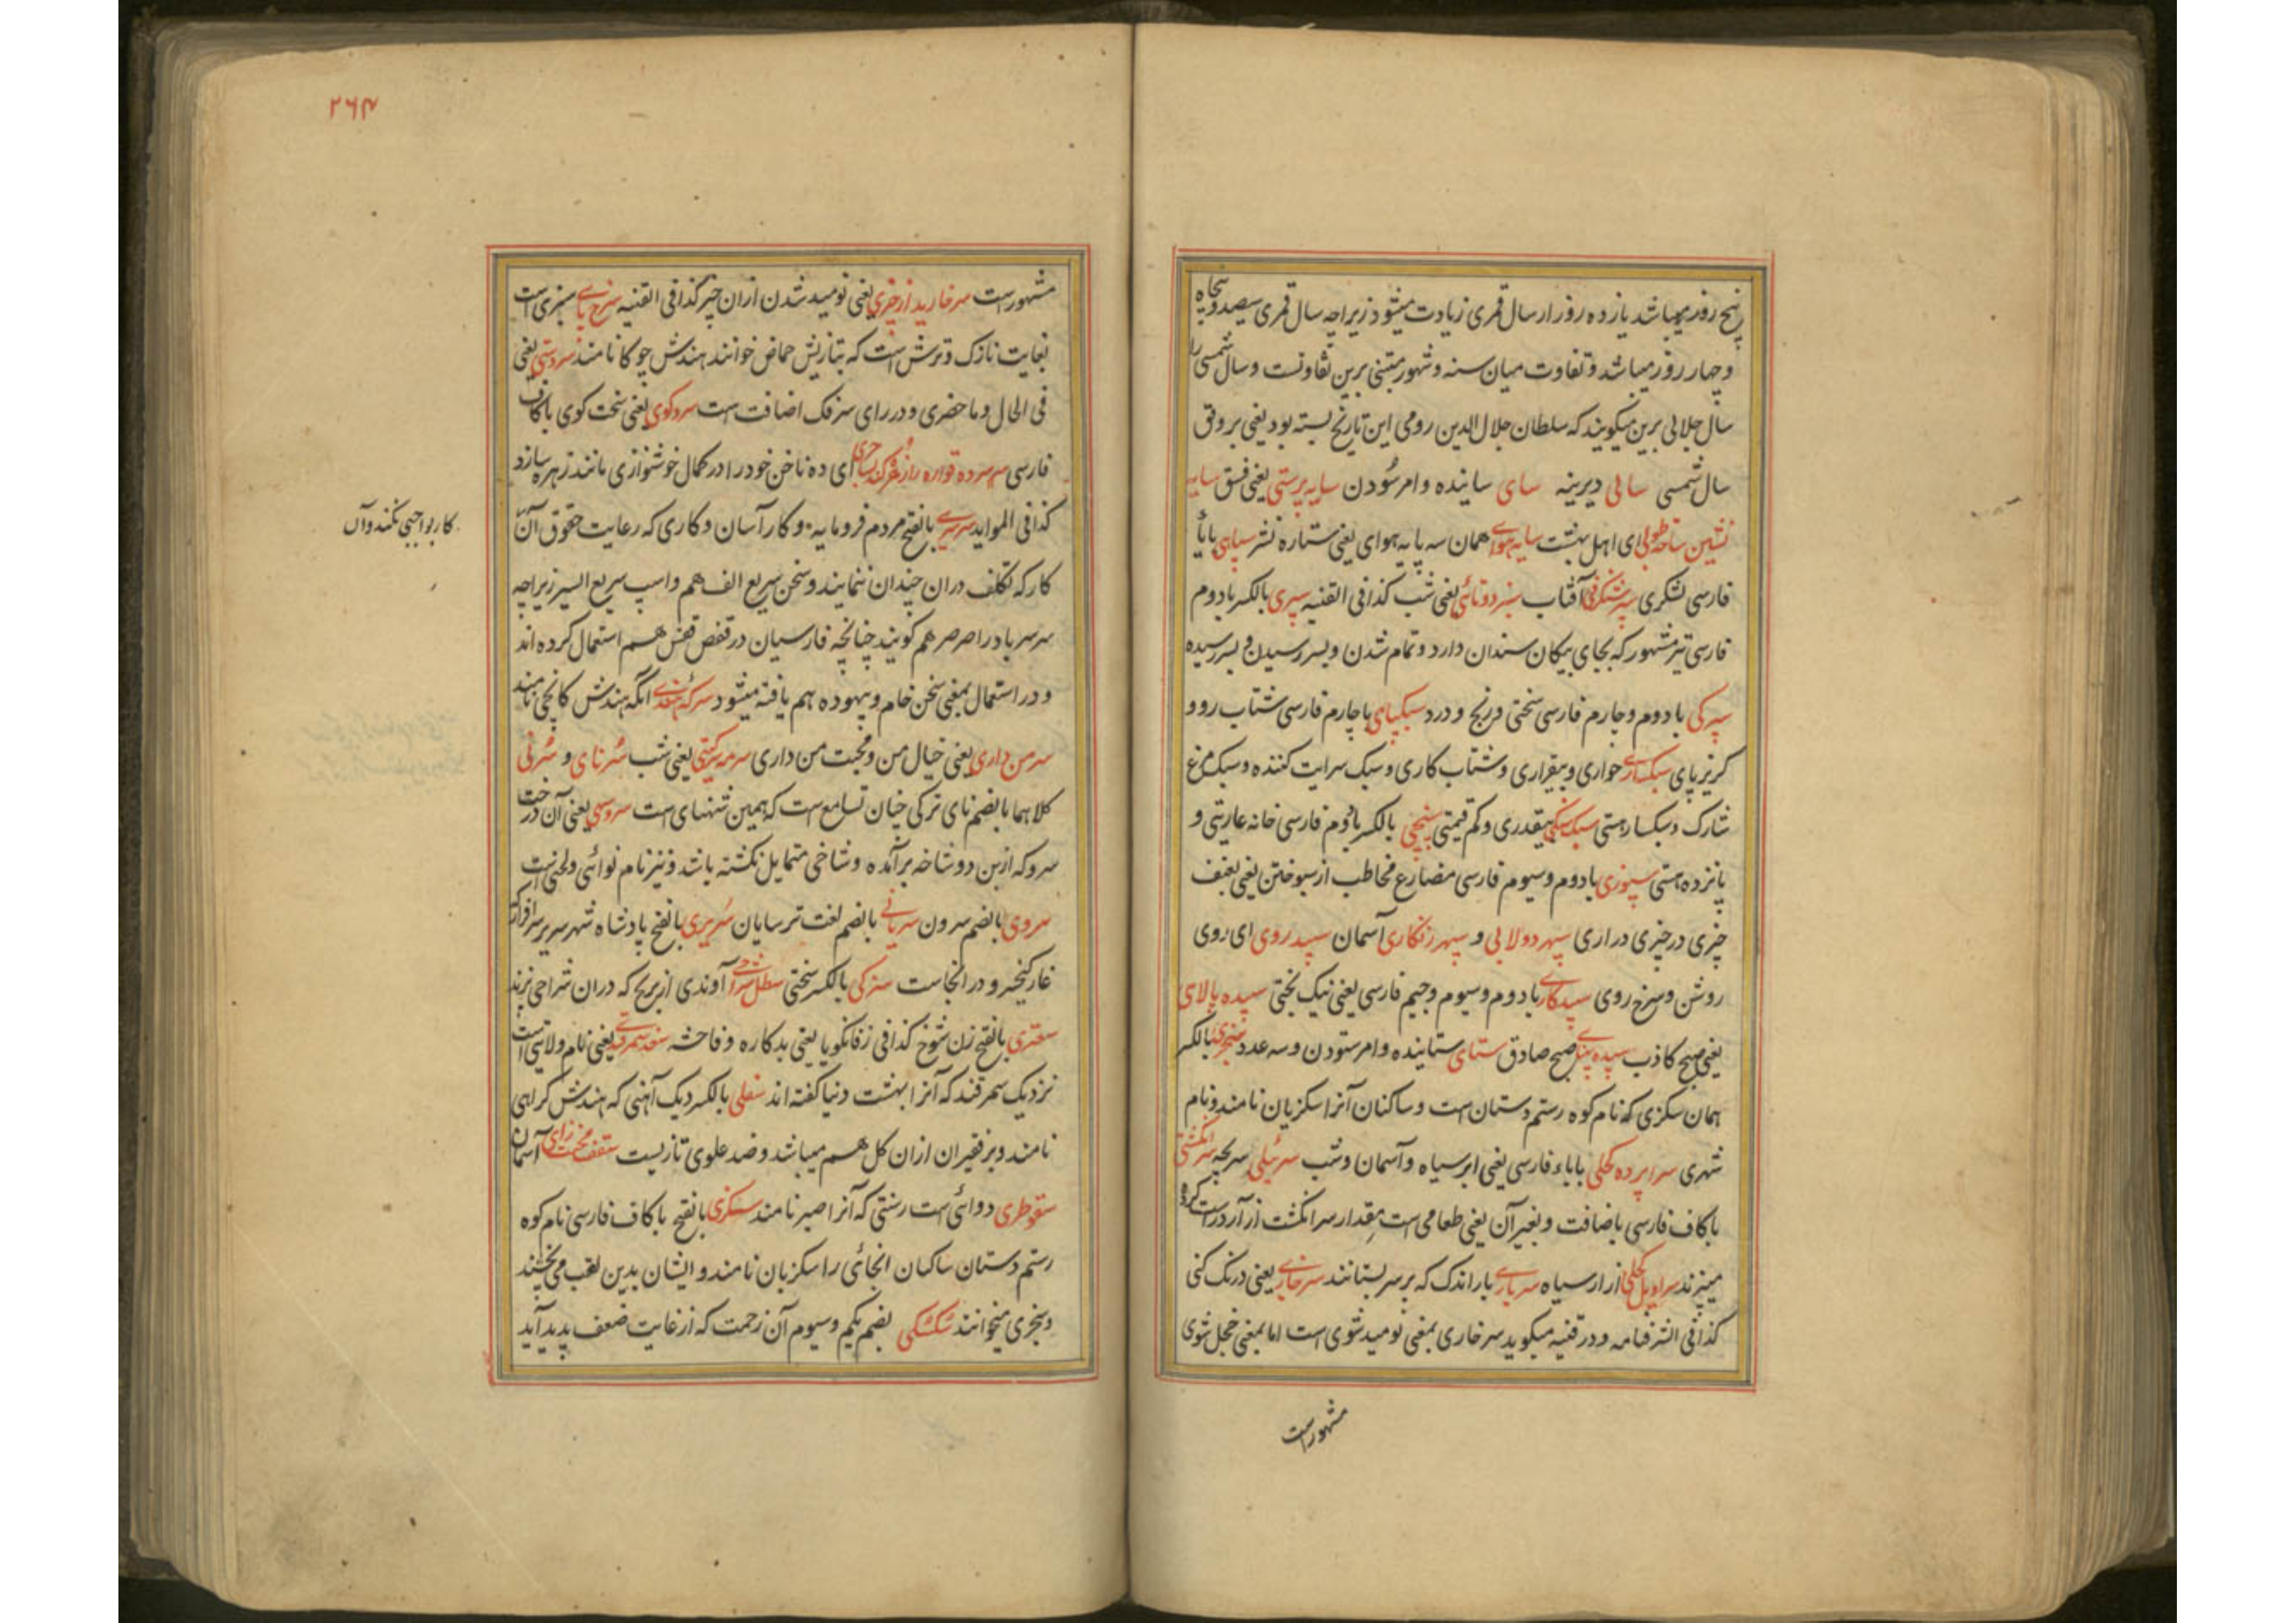 پنج روز میباشد یازده روز از سال قمری زیادت میشود زیراچه سال قمری سیصد و پنجاه
و چهار روز میباشد و تفاوت میان سنه و شهور مبتنی برین تفاوتست و سال شمسی را
سال جلالی برین میگویند که سلطان جلال الدین رومی این تاریخ بسته بود یعنی بر وفق
سال شمسی سالی دیرینه سای ساینده و امر سودن سایه پرستی یعنی فسق سایه
نشین ای اهل بهشت سایه هوای همان سه پایه هوای یعنی ستاره نسر سپاهی بابا
فارسی لشکری آفتاب یعنی شب کذا فی القنیه سپری بالکسر با دوم
فارسی تیر مشهور که بجای پیکان سندان دارد و تمام شدن و بسر رسیدن و بسر رسیده
با دوم و چارم فارسی سختی و رنج و درد سبکپای با چارم فارسی شتاب رو و
گریز پای سبکساری خواری و بیقراری و شتاب کاری و سبک سرایت کننده و سبک مرغ
شارک و سبکسار هستی سبک سنگی بیقدری و کم قیمتی سپنجی بالکسر با دوم فارسی خانه عاریتی و
پانزده هستی سپوزی با دوم و سیوم فارسی مضارع مخاطب از سپوختن یعنی بعنف
چیزی در چیزی در آری سپهر دولابی و سپهر زنگاری آسمان سپید روی ای روی
روشن و سرخ روی سپیدکاری با دوم و سیوم و جیم فارسی یعنی نیک بختی سپیده بالای
یعنی صبح کاذب صبح صادق ستای ستاینده و امر ستودن و سه عدد سجزی بالکسر
همان سکزی که نام کوه رستم دستان است و ساکنان آنرا سکزیان نامند و نام
شهری سراپرده کحلی با باء فارسی یعنی ابر سیاه و آسمان و شب سرپلی سریچه سر انگشتی
با کاف فارسی باضافت و بغیر آن یعنی طعامی است مقدار سر انگشت از آرد راست کرده
میپزند ازار سیاه سرباری بار اندک که بر سر بستانند سرخاری یعنی درنگ کنی
کذا فی الشرفنامه و در قنیه میگوید سرخاری بمعنی نومید شوی است اما بمعنی خجل شوی
مشهور است
۲۶۴
مشهور است سرخارید از چیزی یعنی نومید شدن از ان چیز کذا فی القنیه سرخ پای سبزی است
بغایت نازک و ترش است که بتازیش حماض خوانند هندش چوکا نامند سردستی یعنی
فی الحال و ماحضری و در رای سر فک اضافت است سرد گوی یعنی سخت گوی با کاف
فارسی ای ده ناخن خود را در کمال خوشنوازی مانند زهره سازد
کذا فی الموايد سرسری بالفتح مردم فرومایه و کار آسان و کاری که رعایت حقوق آن
کار بواجبی نکند و آن
کار که تکلف دران چندان ننمایند و سخن سریع الفهم و اسپ سریع السیر زیراچه
سرسر باد را صرصر هم گویند چنانچه فارسیان در قفص قفس هم استعمال کرده اند
و در استعمال بمعنی سخن خام و بیهوده هم یافته میشود سرکه هندی آنکه هندش کانجی نامند
سر من داری یعنی خیال من و محبت من داری سرمه گیتی یعنی شب سرنای و سرنی
کلاهما بالضم نای ترکی خیان تسامع است که همین شهنای است سروسهی یعنی آن درخت
سرو که ازبن دو شاخه برآمده و شاخی متمایل نگشته باشد و نیز نام نوائی و لحنی است
سروی بالضم سرون سریانی بالضم لغت ترسایان سریری بالفتح پادشاه شهر سریر سرافراز که
غار کیخسرو در انجاست سزکی بالکسر سختی آوندی از برنج که دران شراحی نهند
سعتری بالفتح زن شوخ کذا فی زفانگویا یعنی بدکاره و فاحشه سغد سمرقندی یعنی نام ولایتی است
نزدیک سمرقند که آنرا بهشت دنیا گفته اند سفلی بالکسر دیگ آهنی که هندش کراهی
نامند و بر فقیران ازان گل هم میباشد و ضد علوی تازیست سقف آسمان
سقوطری دوائی است رستنی که آنرا صبر نامند سکزی بالفتح با کاف فارسی نام کوه
رستم دستان ساکنان انجائی را سکزیان نامند و ایشان بدین لقب می بخشند
و سجزی میخوانند سکسکی بضم یکم و سیوم آن زحمت که از غایت ضعف پدید آید